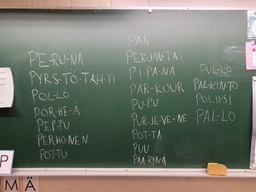 PE-RU-NA
PYRS-TÖ-TÄH-TI
POL-LÖ
POR-HE-A
PEP-PU
PERHO-NEN
POT-TU
PAA
PER-JAN-TAI
PI-PA-NA
PAR-KOUR
PU-PU
PUR-JE-VE-NE
POT-TA
PUU
PAA-RYNÄ
PUL-LO
PAL-KIN-TO
POLII-SI
PAL-LO
P
M Ä